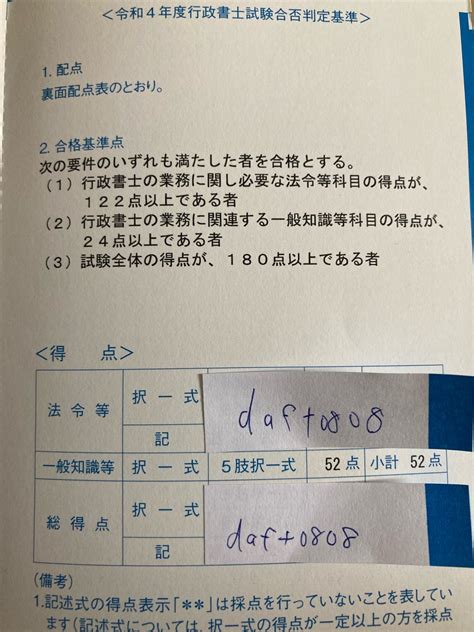 ＜令和４年度行政書士試験合否判定基準＞
1. 配点
裏面配点表のとおり。
2. 合格基準点
次の要件のいずれも満たした者を合格とする。
（１）行政書士の業務に関し必要な法令等科目の得点が、
１２２点以上である者
（２）行政書士の業務に関連する一般知識等科目の得点が、
２４点以上である者
（３）試験全体の得点が、１８０点以上である者
＜得　点＞
法令等 択一式
記
daft0808
一般知識等 択一式 ５肢択一式 52点 小計 52点
総得点 択一式
記
daft0808
(備考)
1.記述式の得点表示「**」は採点を行っていないことを表してい
ます(記述式については、択一式の得点が一定以上の方を採点